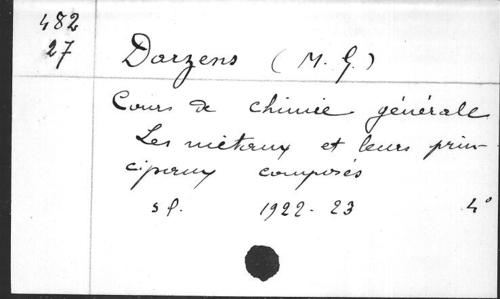 482
27
Darzens (M. G.)
Cours de chimie générale
Les métaux et leurs prin-
cipaux composés
s l. 1922-23 4°